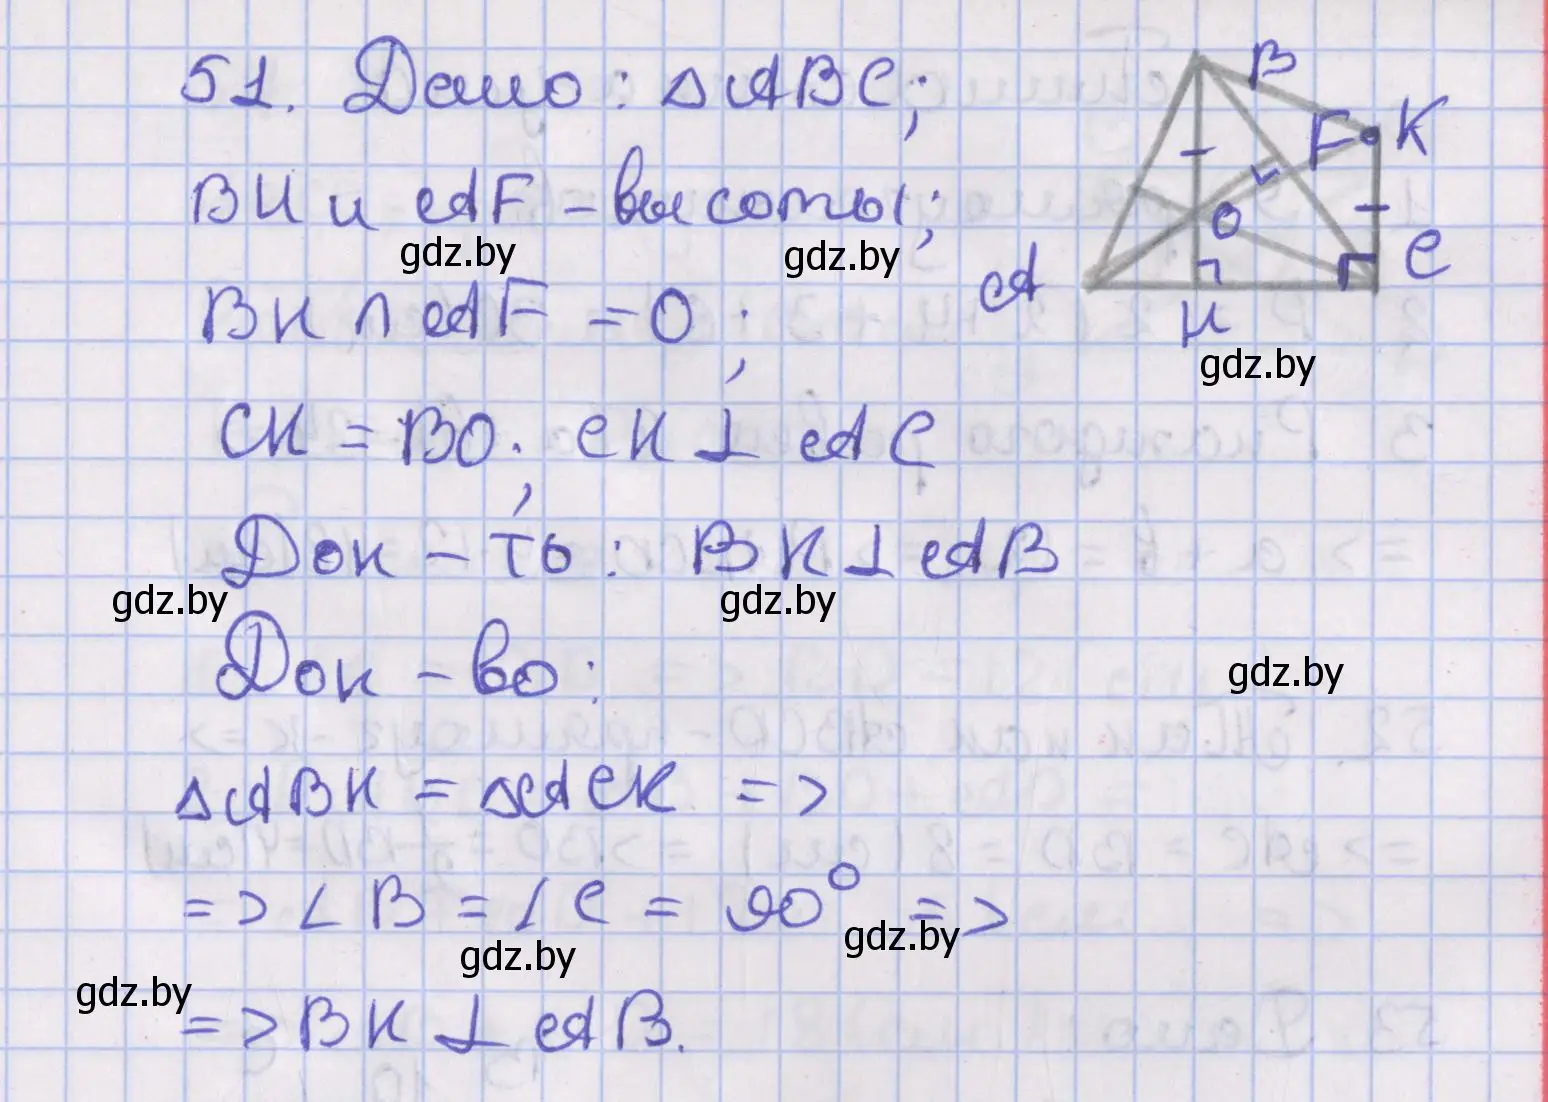 51. Дано: △ABC;
B
F
K
BH и AF – высоты;
gdz.by
gdz.by
O
C
A
H
BH ∩ AF = O;
gdz.by
CK = BO; CK ⊥ AC
Док – ть: BK ⊥ AB
gdz.by
gdz.by
Док – во:
gdz.by
△ABK = △ACK =>
=> ∠B = ∠C = 90° =>
gdz.by
gdz.by
gdz.by
=> BK ⊥ AB.